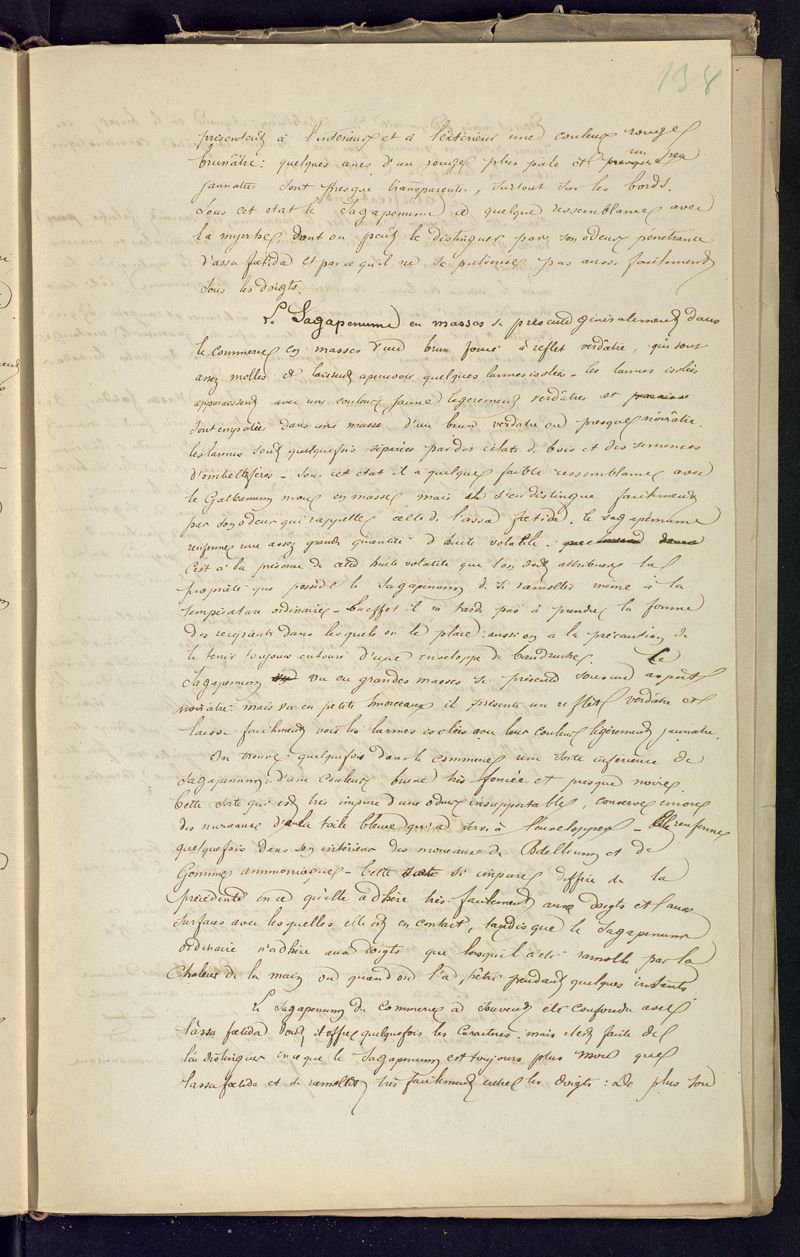 138
présentent à l'intérieur et à l'extérieur une couleur rouge
brunâtre : quelques unes d'un rouge plus pale et un peu
jaunatre sont presque transparentes, surtout sur les bords.
Sous cet etat le Sagapenum a quelque ressemblance avec
la myrrhe, dont on peut le distinguer par son odeur pénétrante
d'assa foetida et parcequ'il ne se pulverise pas aussi facilement
sous les doigts.
Le Sagapenum en masses se présente généralement dans
le commerce en masses d'un brun foncé à reflet verdâtre, qui sont
assez molles et laissent apercevoir quelques larmes isolées - les larmes isolées
apparaissent avec une couleur jaune légerement verdâtre et
sont empatées dans une masse d'un brun verdatre ou presque noirâtre.
les larmes sont quelquefois séparées par des éclats de bois et des semences
d'ombellifères - Sous cet état il a quelque faible ressemblance avec
le Galbanum mou en masses, mais il s'en distingue facilement
par son odeur qui rappelle celle de l'assa foetida. le sagapenum
renferme une assez grande quantité d'huile volatile.
C'est à la présence de cette huile volatile que l'on doit attribuer la
propriété que possède le Sagapenum de se ramollir même à la
température ordinaire - En effet il ne tarde pas à prendre la forme
des recipients dans lesquels on le place : aussi on a la précaution de
le tenir toujours entouré d'une enveloppe de baudruche. Le
Sagapenum vu en grandes masses se présente sous un aspect
noirâtre mais vu en petits morceaux il présente un reflet verdâtre et
laisse facilement voir les larmes isolées avec leur couleur légèrement jaunatre.
On trouve quelquefois dans le commerce une sorte inférieure de
Sagapenum, d'une couleur brune très foncée et presque noire.
Cette sorte qui est très impure d'une odeur insupportable, conserve encore
des morceaux de la toile bleue qui a servi à l'envelopper - Elle renferme
quelquefois dans son intérieur des morceaux de Bdellium et de
Gomme ammoniaque - Cette sorte si impure diffère de la
précédente en ce qu'elle adhère très facilement aux doigts et aux
surfaces avec lesquelles elle est en contact, tandis que le Sagapenum
ordinaire n'adhère aux doigts que lorsqu'il a été ramolli par la
chaleur de la main ou quand on l'a pétri pendant quelques instants
Le Sagapenum du commerce a souvent été confondu avec
l'assa foetida dont il offre quelquefois les caractères. mais il est facile de
les distinguer en ce que le Sagapenum est toujours plus mou que
l'assa foetida et se ramollit très facilement entre les doigts : De plus son